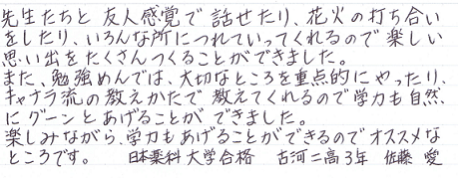 先生たちと友人感覚で話せたり、花火の打ち合い
をしたり、いろんな所につれていってくれるので楽しい
思い出をたくさんつくることができました。
また、勉強めんでは、大切なところを重点的にやったり、
キャナラ流の教えかたで教えてくれるので学力も自然
にグーンとあげることができました。
楽しみながら、学力もあげることができるのでオススメな
ところです。 日本薬科大学合格 古河二高3年 佐藤 愛